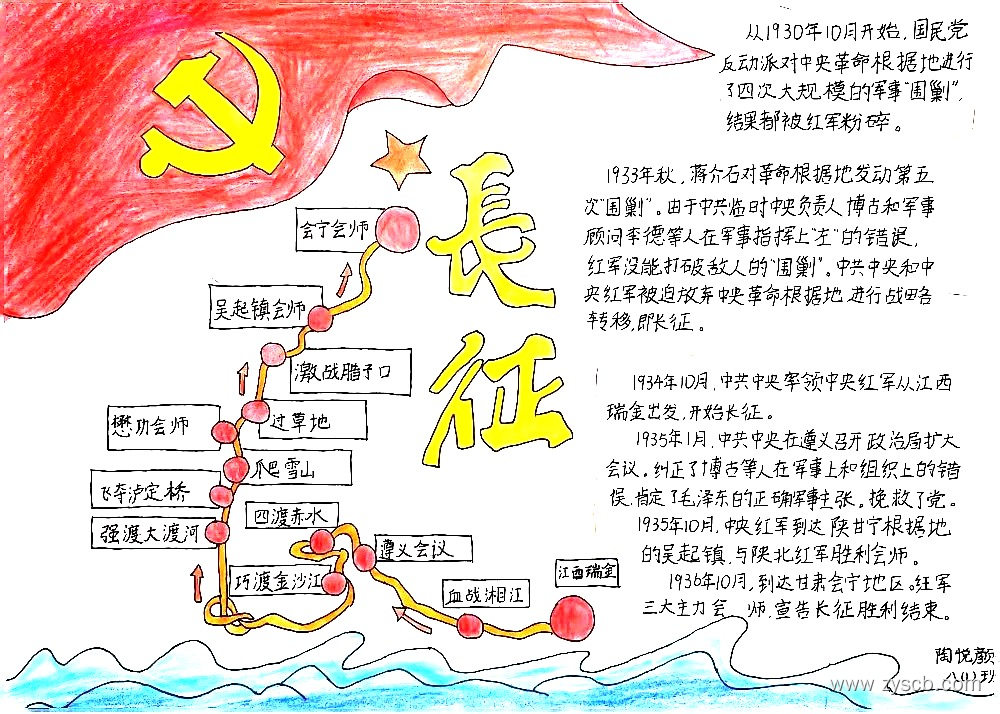 从1930年10月开始,国民党
反动派对中央革命根据地进行
了四次大规模的军事"围剿",
结果都被红军粉碎。
1933年秋,蒋介石对革命根据地发动第五
次"围剿"。由于中共临时中央负责人博古和军事
顾问李德等人在军事指挥上"左"的错误,
红军没能打破敌人的"围剿"。中共中央和中
央红军被迫放弃中央革命根据地进行战略
转移,即长征。
1934年10月,中共中央率领中央红军从江西
瑞金出发,开始长征。
1935年1月,中共中央在遵义召开政治局扩大
会议。纠正了博古等人在军事上和组织上的错
误,肯定了毛泽东的正确军事主张。挽救了党。
1935年10月,中央红军到达陕甘宁根据地
的吴起镇,与陕北红军胜利会师。
1936年10月,到达甘肃会宁地区。红军
三大主力会师,宣告长征胜利结束。
長
征
会宁会师
吴起镇会师
激战腊子口
过草地
懋功会师
爬雪山
飞夺泸定桥
强渡大渡河
四渡赤水
遵义会议
巧渡金沙江
血战湘江
江西瑞金
陶悦颜
八(1)班
www.zyscb.com